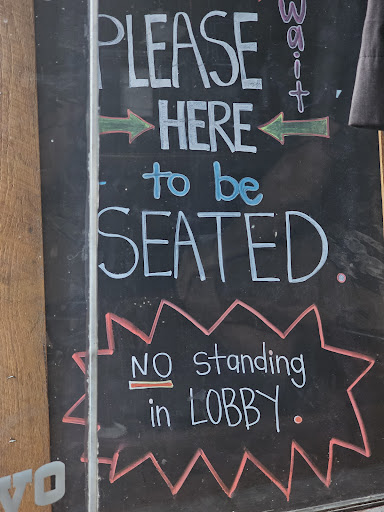 PLEASE wait
HERE
to be
SEATED.
NO standing
in LOBBY.
vo